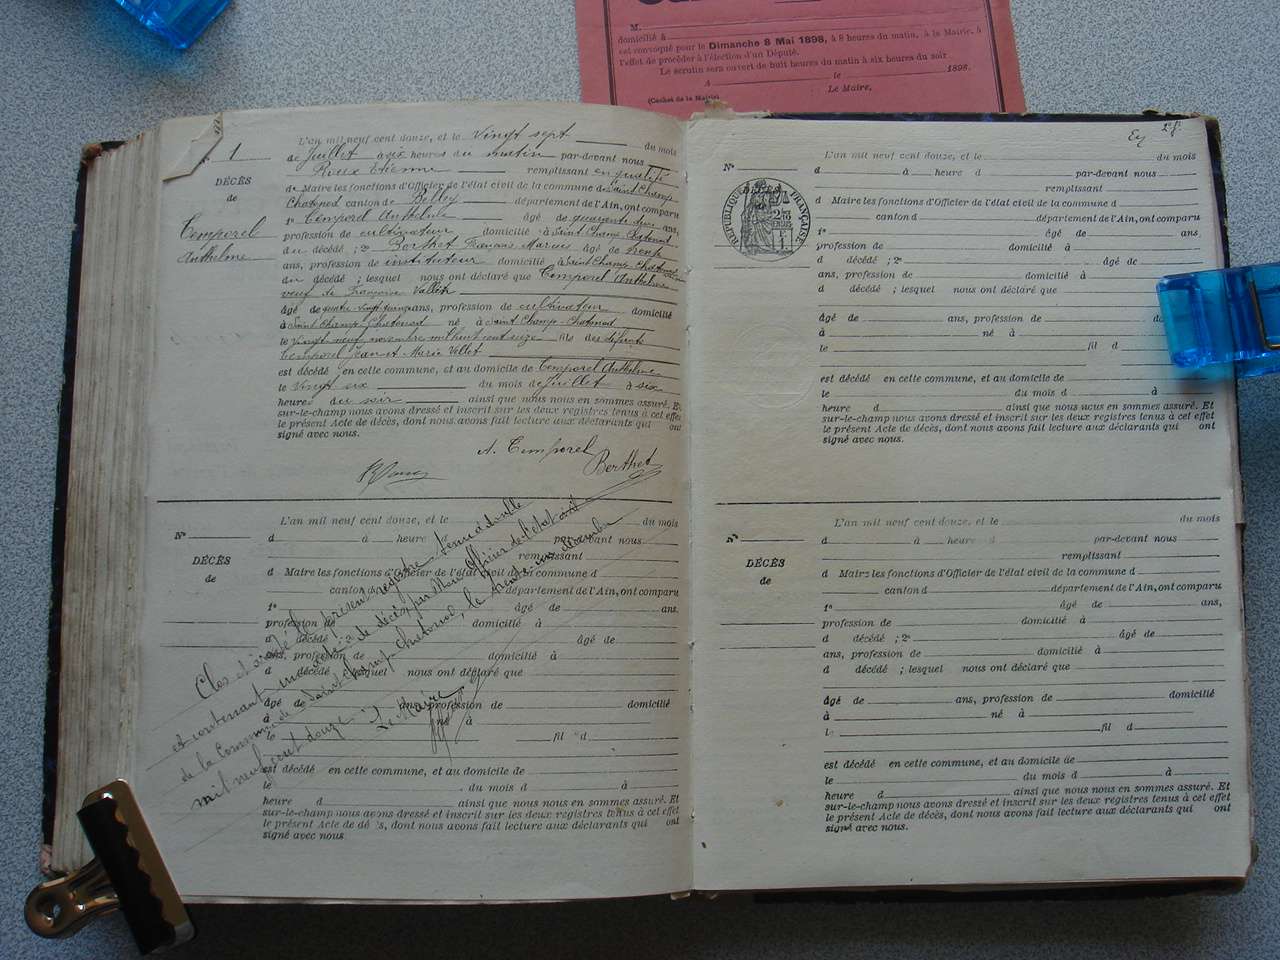 M.
domicilié à
est convoqué pour le Dimanche 8 Mai 1898, à 8 heures du matin, à la Mairie, à
l'effet de procéder à l'élection d'un Député.
Le scrutin sera ouvert de huit heures du matin à six heures du soir
A le 1898.
(Cachet de la Mairie) Le Maire,
N° 1
DÉCÈS
de
Temporel
Anthelme
L'an mil neuf cent douze, et le Vingt sept du mois
de Juillet à six heures du matin par-devant nous
Roux Etienne remplissant en qualité
de Maire les fonctions d'Officier de l'état civil de la commune de Saint Champ
Chatonod canton de Belley département de l'Ain, ont comparu
1° Temporel Anthelme âgé de quarante ans,
profession de cultivateur domicilié à Saint Champ Chatonod
du décédé ; 2° Berthet François Marius âgé de trente
ans, profession de instituteur domicilié à Saint Champ Chatonod
du décédé ; lesquel nous ont déclaré que Temporel Anthelme
veuf de Françoise Vallet
âgé de quatre vingt quinze ans, profession de cultivateur domicilié
à Saint Champ Chatonod né à Saint Champ-Chatonod
le Vingt neuf novembre mil huit cent seize fils des défunts
Temporel Jean et Marie Vellet
est décédé en cette commune, et au domicile de Temporel Anthelme
le Vingt six du mois de Juillet à six
heures du soir ainsi que nous nous en sommes assuré. Et
sur-le-champ nous avons dressé et inscrit sur les deux registres tenus à cet effet
le présent Acte de décès, dont nous avons fait lecture aux déclarants qui ont
signé avec nous.
A. Temporel
Berthet
N°
DÉCÈS
de
L'an mil neuf cent douze, et le du mois
d à heure par-devant nous
remplissant
d Maire les fonctions d'Officier de l'état civil de la commune d
canton d département de l'Ain, ont comparu
1° âgé de ans,
profession de domicilié à
d décédé âgé de
ans, profession de domicilié à
d décédé lesquel nous ont déclaré que
âgé de ans, profession de domicilié
à né à
le fil d
est décédé en cette commune, et au domicile de
le du mois d à
heure d ainsi que nous nous en sommes assuré. Et
sur-le-champ nous avons dressé et inscrit sur les deux registres tenus à cet effet
le présent Acte de décès, dont nous avons fait lecture aux déclarants qui ont
signé avec nous.
Clos et arrêté le présent registre tenu à double
et contenant un acte de décès, par Nous Officier de l'état civil
de la Commune de Saint Champ-Chatonod, le trente-un décembre
mil neuf cent douze
Le Maire
2e f.
N°
DÉCÈS
de
RÉPUBLIQUE FRANÇAISE
L'an mil neuf cent douze, et le du mois
d à heure d par-devant nous
remplissant
d Maire les fonctions d'Officier de l'état civil de la commune d
canton d département de l'Ain, ont comparu
1° âgé de ans,
profession de domicilié à
d décédé ; 2° âgé de
ans, profession de domicilié à
d décédé ; lesquel nous ont déclaré que
âgé de ans, profession de
à né à
le fil d
est décédé en cette commune, et au domicile de
le du mois d à
heure d ainsi que nous nous en sommes assuré. Et
sur-le-champ nous avons dressé et inscrit sur les deux registres tenus à cet effet
le présent Acte de décès, dont nous avons fait lecture aux déclarants qui ont
signé avec nous.
N°
DÉCÈS
de
L'an mil neuf cent douze, et le du mois
d à heure d par-devant nous
remplissant
d Maire les fonctions d'Officier de l'état civil de la commune d
canton d département de l'Ain, ont comparu
1° âgé de ans,
profession de domicilié à
d décédé ; 2° âgé de
ans, profession de domicilié à
d décédé ; lesquel nous ont déclaré que
âgé de ans, profession de domicilié
à né à
le fil d
est décédé en cette commune, et au domicile de
le du mois d à
heure d ainsi que nous nous en sommes assuré. Et
sur-le-champ nous avons dressé et inscrit sur les deux registres tenus à cet effet
le présent Acte de décès, dont nous avons fait lecture aux déclarants qui ont
signé avec nous.